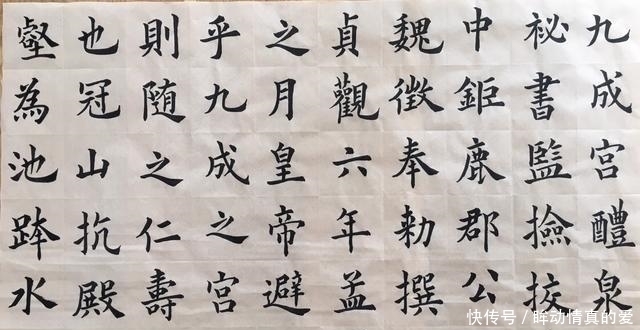 九成宮醴泉
祕書監撿挍
中鉅鹿郡公
魏徵奉勑撰
貞觀六年孟
之月皇帝避
乎九成之宮
則随之仁壽
也冠山抗殿
壑為池跨水
快传号 / 眸动情真的爱